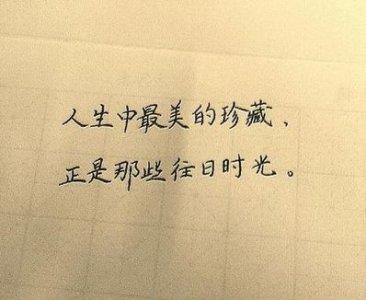 人生中最美的珍藏、
正是那些往日时光。